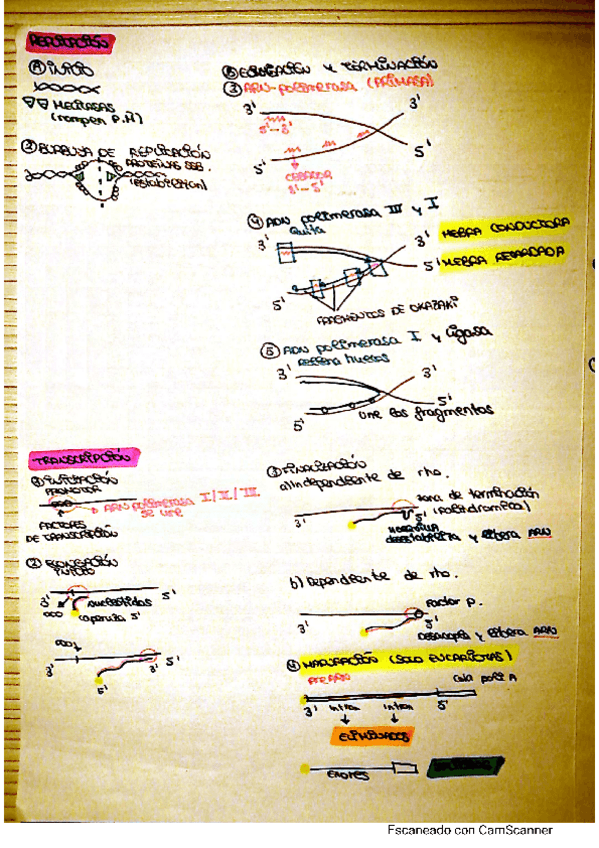 REPLICACIÓN
① INICIO
HELICASAS
(rompen P.H)
② BURBUJA DE REPLICACIÓN
PROTEÍNAS SSB.
(estabilizan)
ELONGACIÓN Y TERMINACIÓN
③ ARN-polimerasa (PRIMASA)
3' 3'
5'-3'
5' 5'
CEBADOR
④ ADN polimerasa III y I
Quita
3' 3' HEBRA CONDUCTORA
5' HEBRA RETARDADA
5'
FRAGMENTOS DE OKAZAKI
⑤ ADN polimerasa I y ligasa
Rellena huecos
3' 3'
5'
5' Une los fragmentos
TRANSCRIPCIÓN
① INICIACIÓN
PROMOTOR
ARN polimerasa I/II/III
se une
FACTORES
DE TRANSCRIPCIÓN
② ELONGACIÓN
3' 5'
nucleótidos
caperuza 5'
3' 3' 5'
5'
③ FINALIZACIÓN
a) Independiente de rho.
zona de terminación
(palindrómica)
3' 5'
HORQUILLA
desestabiliza y libera ARN
b) Dependiente de rho.
3' Factor ρ. 5'
Desacopla y libera ARN
④ MADURACIÓN (SOLO EUCARIOTAS)
PRE ARN cola poli A
3' intron intron 5'
ELIMINADOS
EXONES
Escaneado con CamScanner